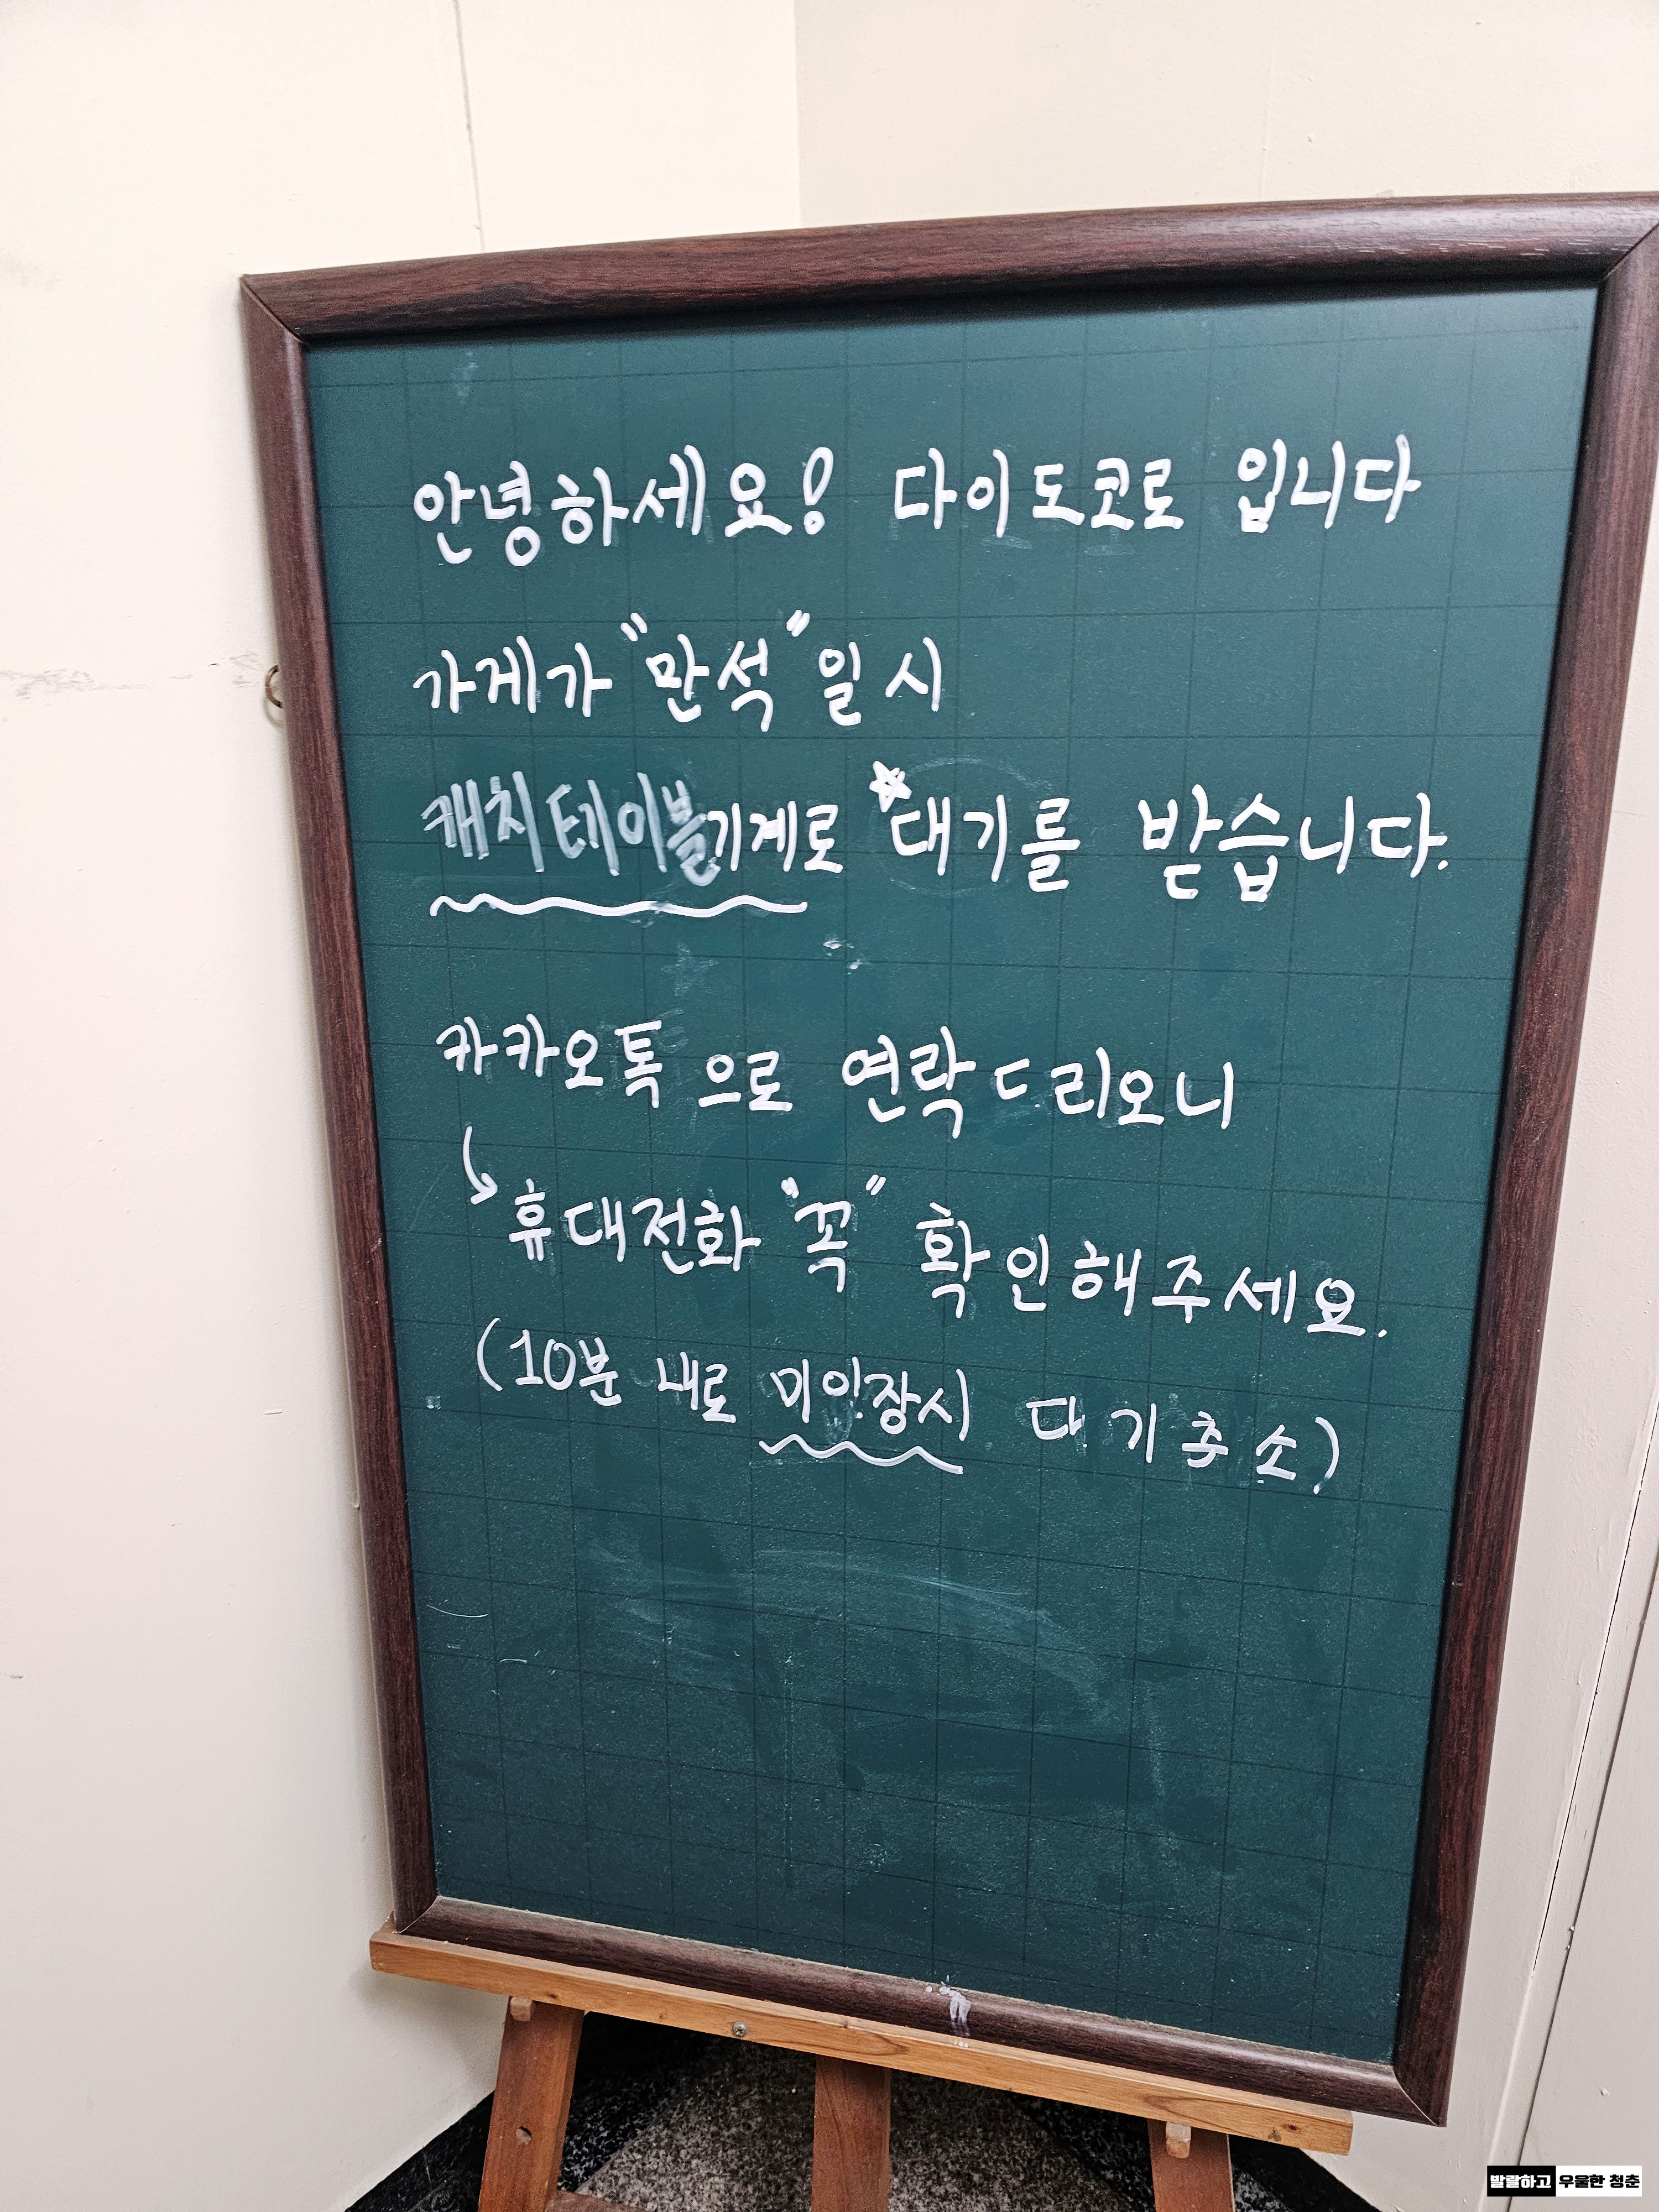 안녕하세요! 다이도코로 입니다
가게가 "만석" 일 시
캐치테이블기계로 ☆대기를 받습니다.
카카오톡 으로 연락드리오니
↳ 휴대전화 "꼭" 확인해주세요.
(10분 내로 미입장시 대기취소)
발랄하고 우울한 청춘